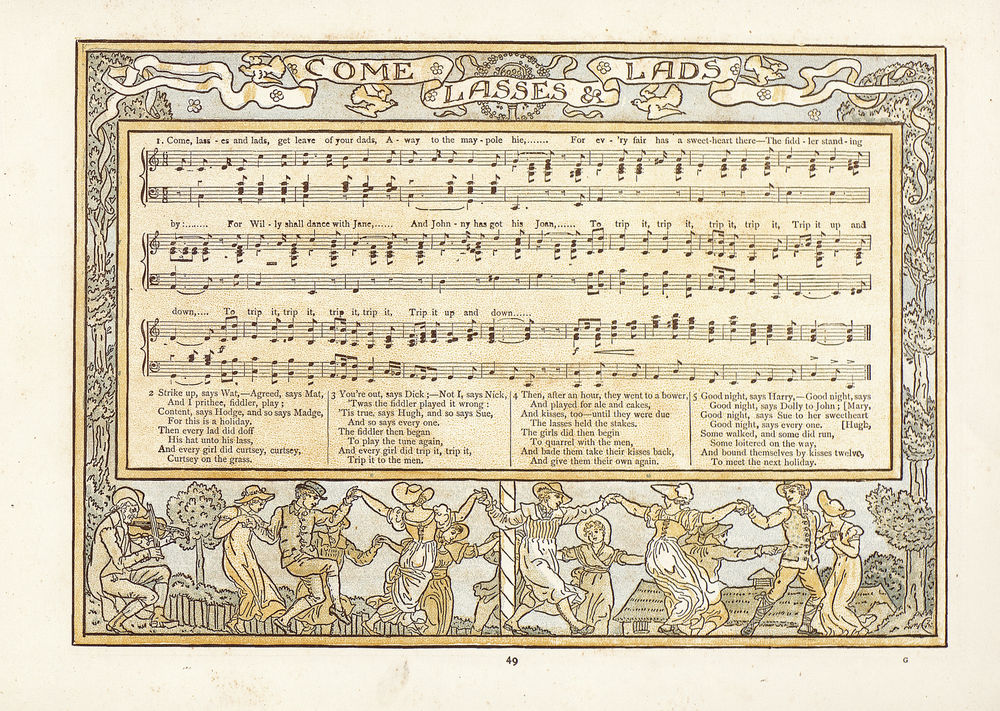 COME LASSES & LADS
1. Come, lass - es and lads, get leave of your dads, A - way to the may - pole hie,....... For ev - 'ry fair has a sweet-heart there—The fidd - ler stand - ing
by:....... For Wil - ly shall dance with Jane,...... And John - ny has got his Joan,...... To trip it, trip it, trip it, trip it, Trip it up and
down,.... To trip it, trip it, trip it, trip it, Trip it up and down......
2 Strike up, says Wat,—Agreed, says Mat,
And I prithee, fiddler, play ;
Content, says Hodge, and so says Madge,
For this is a holiday.
Then every lad did doff
His hat unto his lass,
And every girl did curtsey, curtsey,
Curtsey on the grass.
3 You're out, says Dick ;—Not I, says Nick,
'Twas the fiddler played it wrong :
'Tis true, says Hugh, and so says Sue,
And so says every one.
The fiddler then began
To play the tune again,
And every girl did trip it, trip it,
Trip it to the men.
4 Then, after an hour, they went to a bower,
And played for ale and cakes,
And kisses, too—until they were due
The lasses held the stakes.
The girls did then begin
To quarrel with the men,
And bade them take their kisses back,
And give them their own again.
5 Good night, says Harry,—Good night, says
Good night, says Dolly to John ; [Mary,
Good night, says Sue to her sweetheart
Good night, says every one. [Hugh,
Some walked, and some did run,
Some loitered on the way,
And bound themselves by kisses twelve,
To meet the next holiday.
49
G